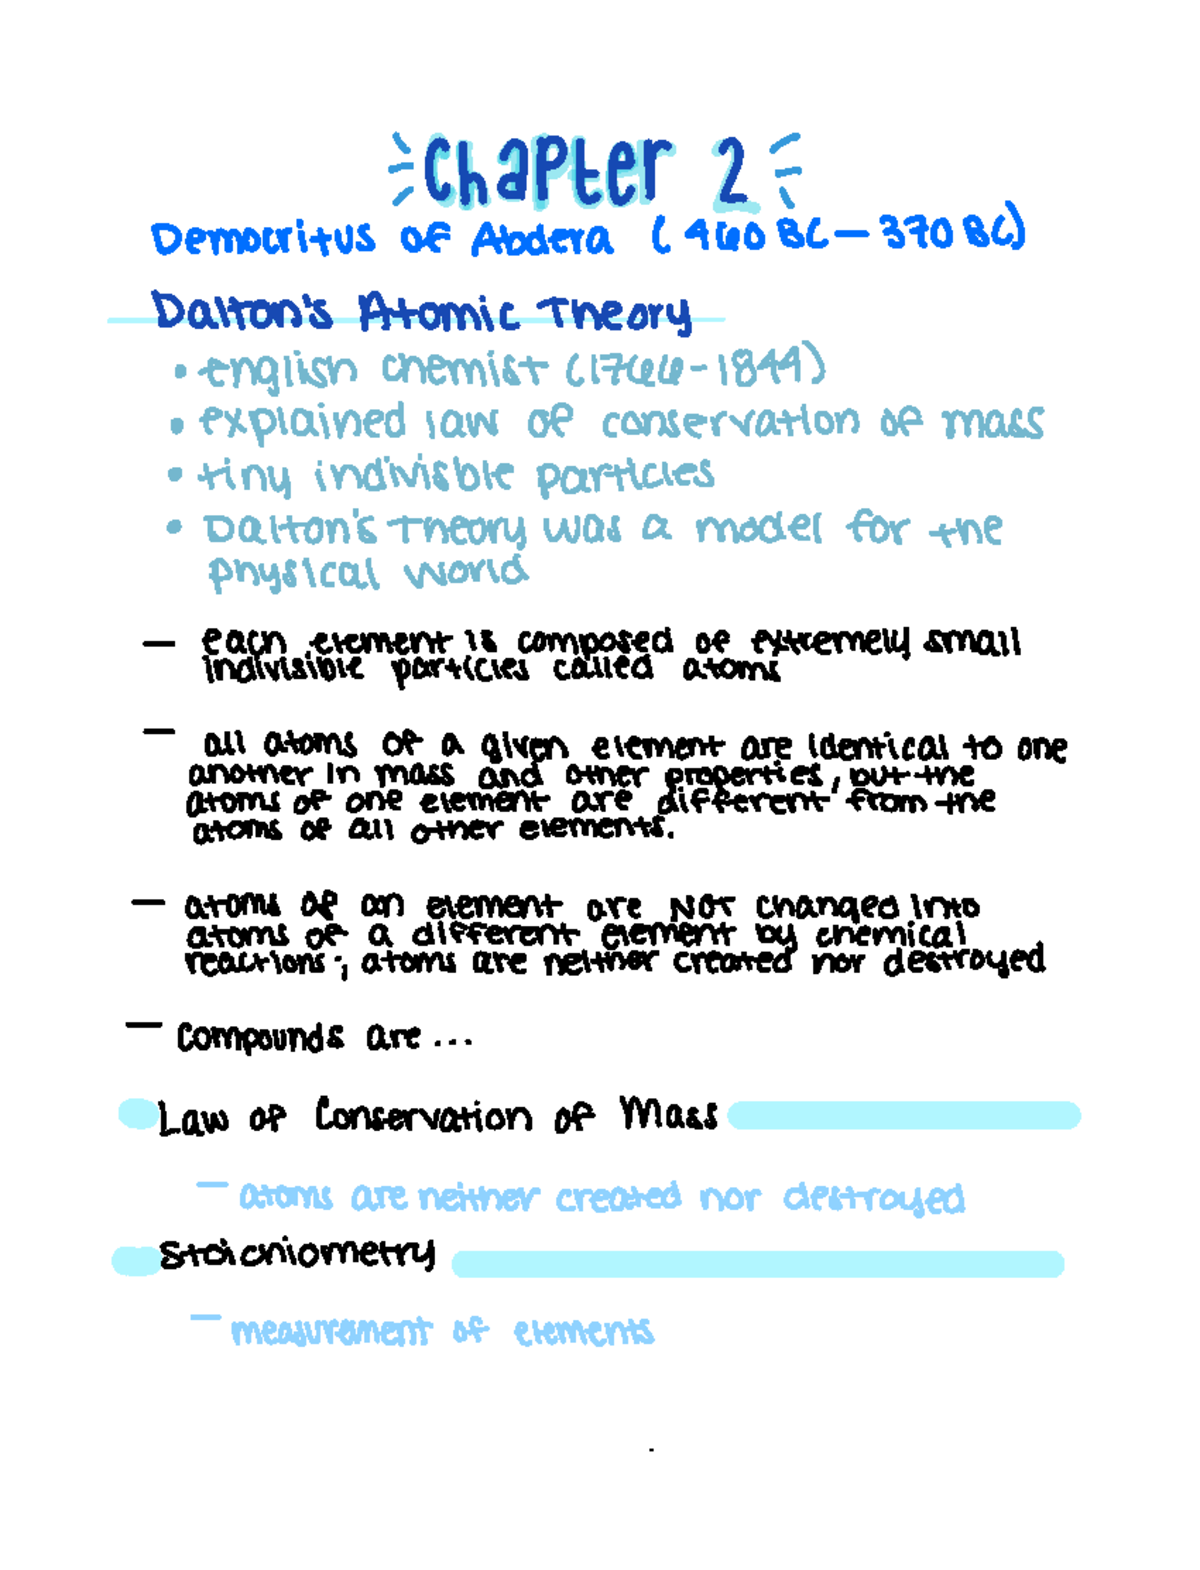 Chapter 2
Democritus of Abdera (460 BC—370 BC)
Dalton's Atomic Theory
• english chemist (1766-1844)
• explained law of conservation of mass
• tiny indivisble particles
• Dalton's Theory was a model for the
physical world
— each element is composed of extremely small
indivisible particles called atoms
— all atoms of a given element are identical to one
another in mass and other properties, but the
atoms of one element are different from the
atoms of all other elements.
— atoms of an element are NOT changed into
atoms of a different element by chemical
reactions; atoms are neither created nor destroyed
— Compounds are...
Law of Conservation of Mass
— atoms are neither created nor destroyed
Stoichiometry
— measurement of elements